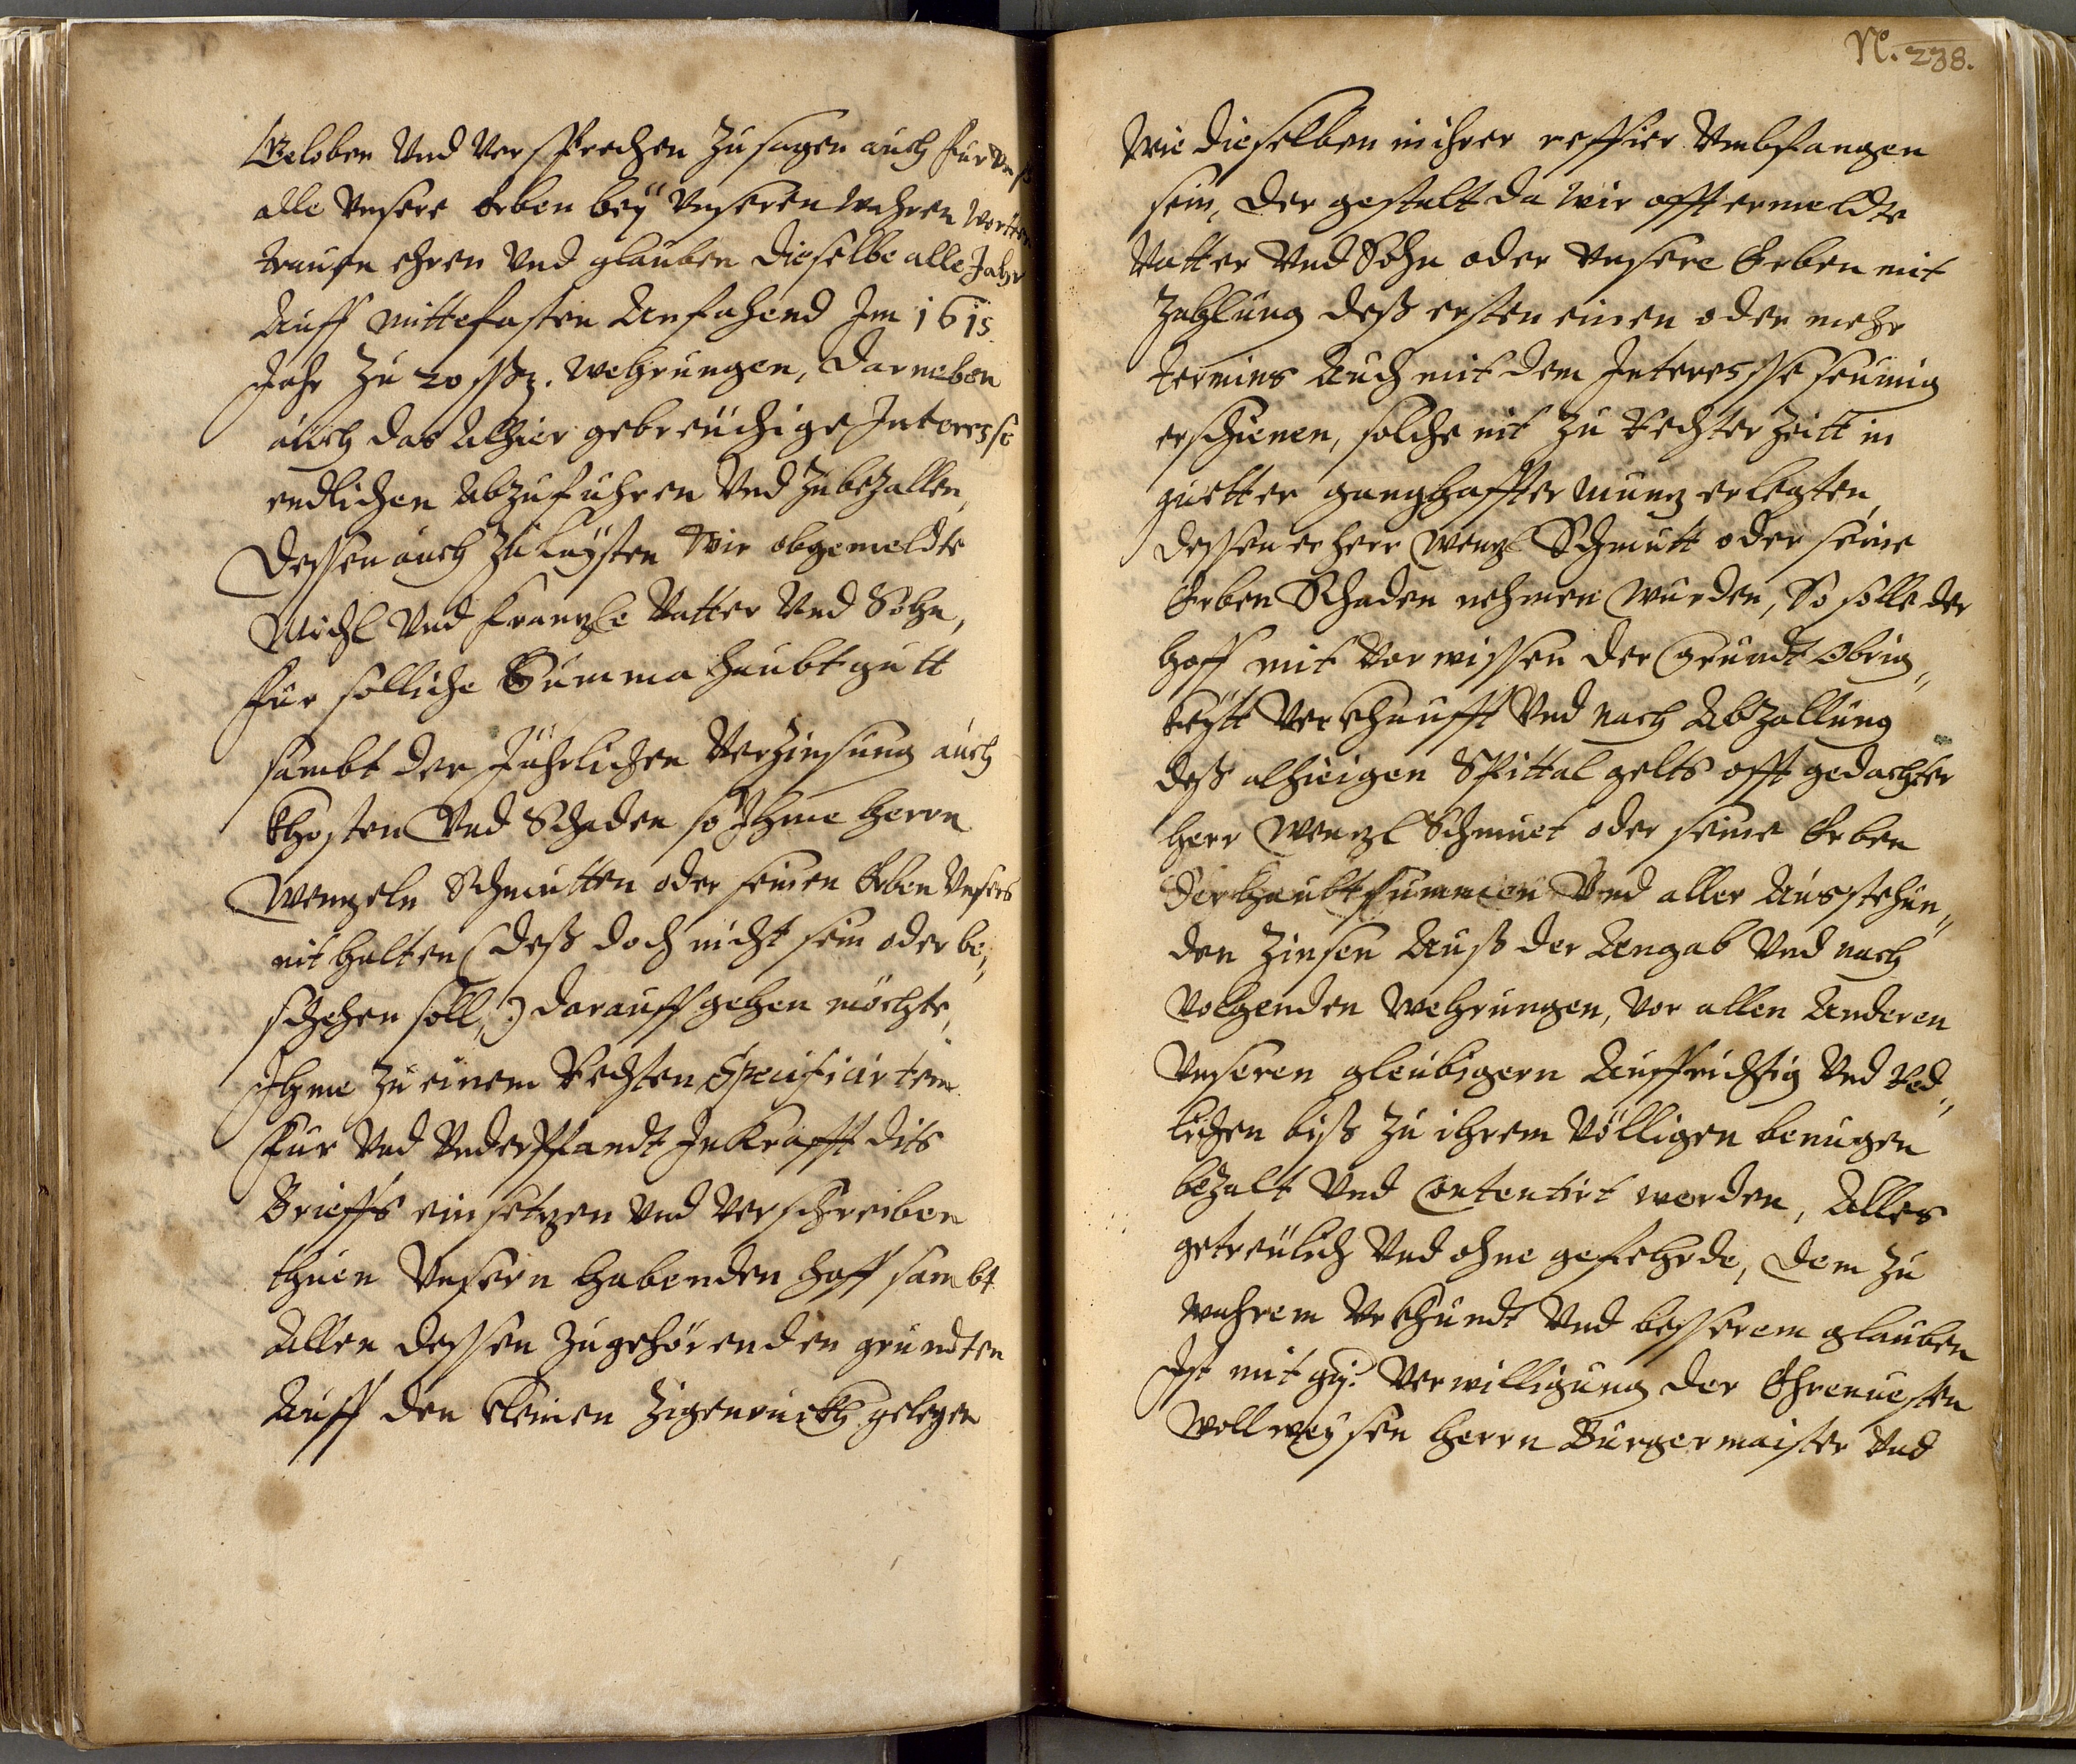 Geloben Und Versprechen Zusagen auch für Uns
alle Unsere Erben beÿ Unseren Wahren Wortten
trauen ehren Und glauben dieselbe alle Jahr
Auff mittefasten Anfahend Im 1615.
Jahr zu 20 ßßg. Wehrungen, darneben
auch das Alhier gebreüchige Interesse
endlichen Abzuführen Und Zubezallen,
Dessen auch zu laÿsten Wir obgemeldte
Michl Und Frantzle Vatter Und Sohn,
Für solliche Summa haubtgutt
sambt der Jährlichen Verzinsung auch
Khosten Und Schaden so Ihme Herrn
Wenzeln Schmutten oder seinen Erben Unsers
nit halten (deß doch nicht sein oder be„
schehen soll,) darauff gehen möchte,
Ihme zu einem Rechten Specificirtem
Für Und Underpfandt In Krafft dits
Brieffs einsetzen Und Verschreiben
thuen Unsern habenden Hoff sambt
Allen dessen Zugehörenden gründten
Auff den kleinen Zigenruckh gelegen
N. 238.
Wie dieselben in ihrer reffier Umbfangen
sein, der gestalt da Wir offt ermeldte
Vatter Und Sohn oder Unsere Erben mit
Zahlung deß ersten einen oder mehr
termins Auch mit dem Interesse seumig
erschienen, solche nit zu Rechter Zeitt in
guetter ganghaffter Muntz erlegten,
dessen er Herr Wenzl Schmutt oder seine
Erben Schaden nehmen Wurden, So solle der
hoff mit Vorwissen der Grundt Obrig„
keÿtt Verkhaufft Und nach Abzallung
deß alhieigen Spittal gelts offt gedachter
Herr Wenzl Schmuet oder seine Erben
der haubtsummen Und aller Ausstehun„
den Zinsen Auß der Angab Und nach
Volgenden Wehrungen, Vor allen Anderen
Unseren gleubigern Auffrichtig Und Red„
lichen biß zu ihrem Völligen benugen
bezalt Und Contentirt werden, Alles
getreulich Und ohne gefehrde, dem zu
wahrem Urkhundt Und besserem glauben
Ist mit gg: Verwilligung der Ehrenvesten
Wollweÿsen Herrn Burgermaister Und